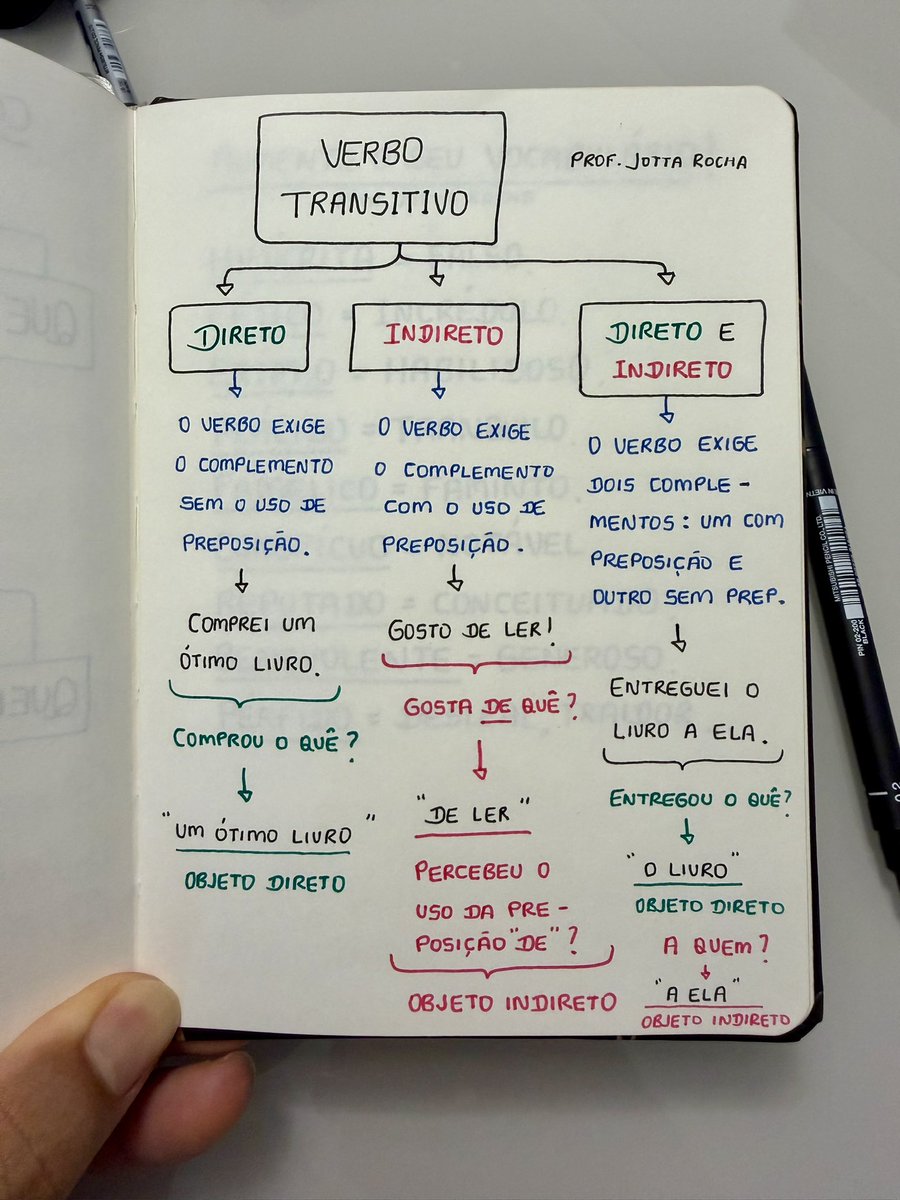 VERBO
TRANSITIVO
PROF. JOTTA ROCHA
DIRETO
O VERBO EXIGE
O COMPLEMENTO
SEM O USO DE
PREPOSIÇÃO.
COMPREI UM
ÓTIMO LIVRO.
COMPROU O QUÊ?
"UM ÓTIMO LIVRO"
OBJETO DIRETO
INDIRETO
O VERBO EXIGE
O COMPLEMENTO
COM O USO DE
PREPOSIÇÃO.
GOSTO DE LER!
GOSTA DE QUÊ?
"DE LER"
PERCEBEU O
USO DA PRE-
POSIÇÃO "DE"?
OBJETO INDIRETO
DIRETO E
INDIRETO
O VERBO EXIGE
DOIS COMPLE-
MENTOS: UM COM
PREPOSIÇÃO E
OUTRO SEM PREP.
ENTREGUEI O
LIVRO A ELA.
ENTREGOU O QUÊ?
"O LIVRO"
OBJETO DIRETO
A QUEM?
"A ELA"
OBJETO INDIRETO
MITSUBISHI PENCIL CO., LTD.
PIN 02-200
BLACK
0.2